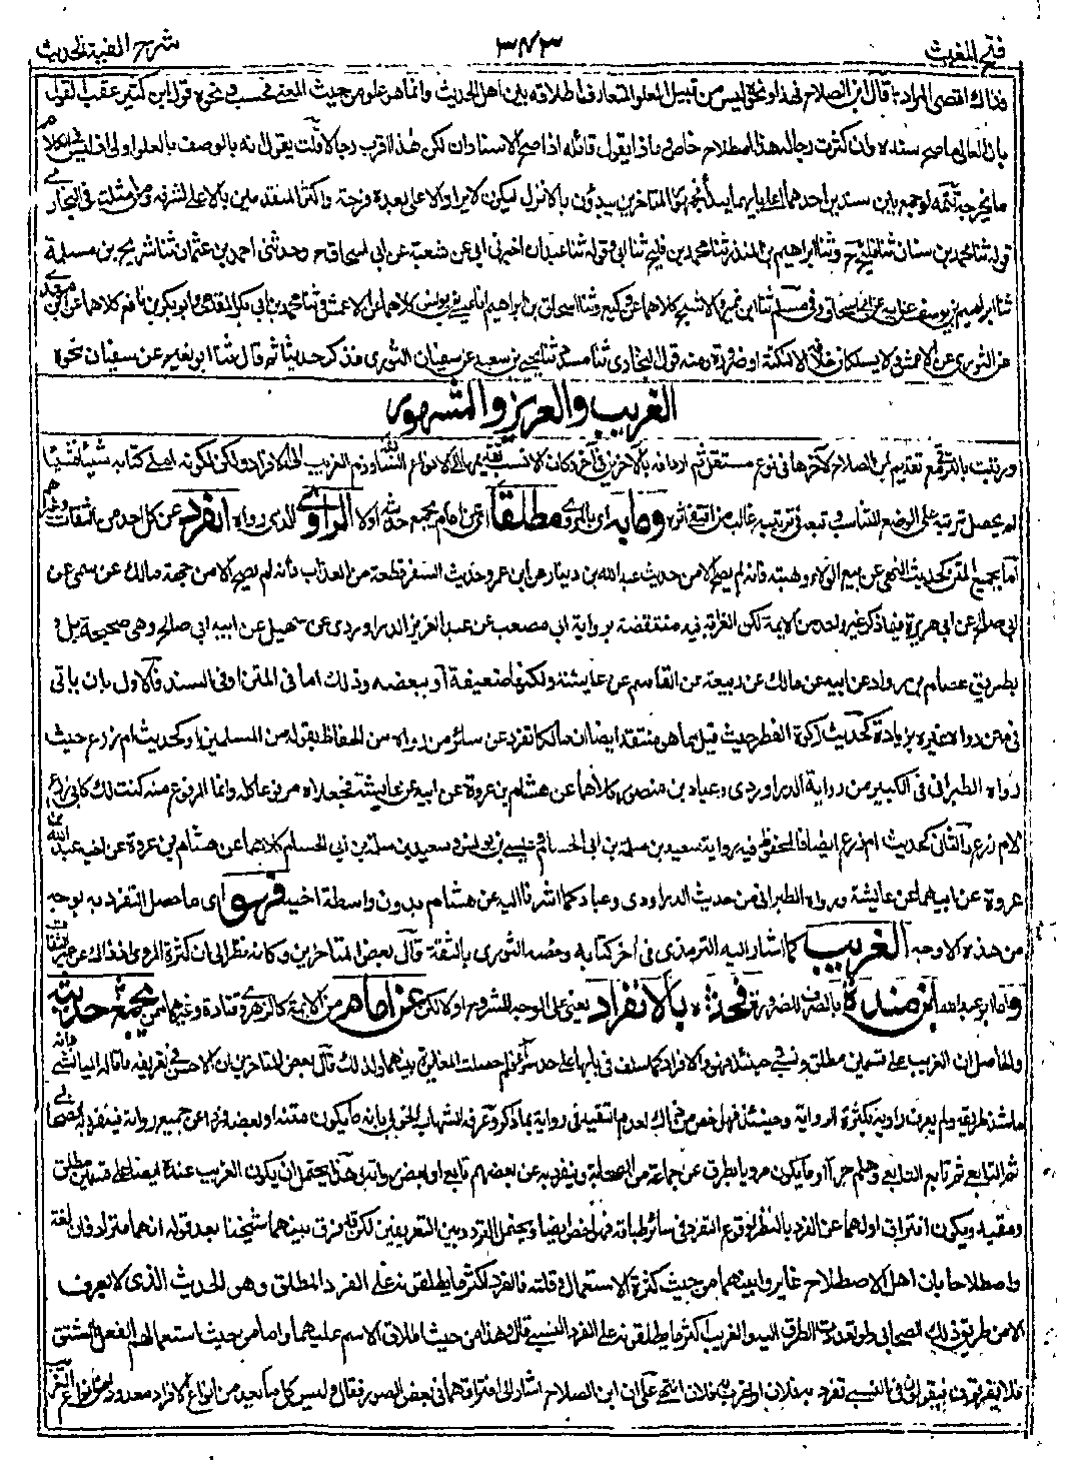 فتح المغيث ٣٤٣ شرح الفية الحديث
فذاك اقتضى المراد قال ابن الصلاح فهذا ونحوه ليس من قبيل العلو المتعارف اطلاقه بين اهل الحديث وانما هو علو من حيث المعنى فحسب ونحوه قول ابن كثير عقب القول
بان العالي ما صح سنده وان كثرت رجاله هذا اصطلاح خاص وماذا يقول قائله اذا صح الاسنادان لكن هذا اقرب رجالا قلت يقول انه بالوصف بالعلو اولى اذ ليس في الكلام
ما يخرجه تتمة لو جمع بين سندين احدهما اعلى بايهما يبدأ فجمهور المتاخرين يبدؤن بالانزل ليكون لايراد الاعلى بعده فرحة واكثر المتقدمين بالاعلى لشرفه ومن امثلته في البخاري
قوله ثنا محمد بن سنان ثنا فليح ح وثنا ابراهيم بن المنذر ثنا محمد بن فليح ثنا ابي وقوله ثنا عبدان اخبرني ابي عن شعبة عن ابي اسحاق ح وحدثني احمد بن عثمان ثنا شريح بن مسلمة
ثنا ابراهيم بن يوسف عن ابيه عن ابي اسحاق وفي مسلم ثنا ابن نمير والاشج كلاهما عن وكيع وثنا اسحاق بن ابراهيم انا عيسى بن يونس كلاهما عن الاعمش وثنا محمد بن ابي بكر المقدمي وابو بكر بن نافع كلاهما عن ابن مهدي
عن الثوري عن الاعمش ولا يسلكان خلافه الا لنكتة او ضرورة ومنه قول البخاري ثنا مسدد ثنا يحيى بن سعيد عن سفيان الثوري فذكر حديثا ثم قال ثنا ابو نعيم عن سفيان نحوه
الغريب والعزيز والمشهور
ورتبت بالترقي مع تقديم ابن الصلاح لآخرها في نوع مستقل ثم اردافه بالآخرين في آخر وكان الانسب تقديمها الى الانواع السابقة وضم الغريب الى الافراد ولكن لكونه املى كتابه شيئا فشيئا
لم يحصل ترتيبه على الوضع المتناسب وتبعه في ترتيبه غالب من اقتفى اثره وما به اي بالمروي مطلقا اي عن امام يجمع حديثه اولا الراوي الذي رواه انفرد عن كل احد من الثقات وغيرهم
اما بجميع المتن كحديث النهي عن بيع الولاء وهبته فانه لم يصح الا من حديث عبد الله بن دينار عن ابن عمر وحديث السفر قطعة من العذاب فانه لم يصح الا من جهة مالك عن سمي عن
ابي صالح عن ابي هريرة فيما ذكر غير واحد من الائمة لكن الغرابة فيه منتقضة برواية ابي مصعب عن عبد العزيز الدراوردي عن سهيل عن ابيه ابي صالح وهي صحيحة بل و
بطريق عصام بن رواد عن ابيه عن مالك عن ربيعة عن القاسم عن عايشة ولكنها ضعيفة او ببعضه وذلك اما في المتن او في السند فالاول بان ياتي
في متن رواه غيره بزيادة كحديث زكاة الفطر حيث قيل مما هو منتقد ايضا ان مالكا تفرد عن سائر من رواه من الحفاظ بقوله من المسلمين او كحديث ام زرع حيث
رواه الطبراني في الكبير من رواية الدراوردي وعباد بن منصور كلاهما عن هشام بن عروة عن ابيه عن عايشة فجعلاه مرفوعا كله وانما المرفوع منه كنت لك كابي زرع
لام زرع والثاني كحديث ام زرع ايضا فالمحفوظ فيه رواية سعيد بن سلمة بن ابي الحسام وعيسى بن يونس وسعيد بن سلمة بن ابي الحسام كلاهما عن هشام بن عروة عن اخيه عبد الله بن
عروة عن ابيهما عن عايشة ورواه الطبراني من حديث الدراوردي وعباد كما اشرنا اليه عن هشام بدون واسطة اخيه فهو اي ما حصل التفرد به بوجه
من هذه الاوجه الغريب كما اشار اليه الترمذي في اخر كتابه وخصه الثوري بالثقة وقال بعض المتاخرين وكانه نظر الى ان كثرة المروي انذاك عن غير الثقات
واما ابو عبد الله ابن مندة بالصرف للضرورة فحده بالانفراد يعني على الوجه المشروح اولا لكن عن امام من الائمة كالزهري وقتادة وغيرهما ممن يجمع حديثه
والحاصل ان الغريب على قسمين مطلق ونسبي وحينئذ فهو والافراد كما سلف في بابها على حد سواء فلم حصلت المغايرة بينهما ولذلك قال بعض المتاخرين ان الاحسن في تعريفه ما قاله الميانشي وانه
ما شذ طريقه ولم يعرف راويه بكثرة الرواية وحينئذ فهو اخص من ذاك لعدم التقييد في رواية بما ذكر وعرفه الشهاب الخوبي بانه ما يكون متنه او بعضه فردا عن جميع رواته فينفرد به الصحابي
ثم التابعي ثم تابع التابعي وهلم جرا او ما يكون مرويا بطرق عن جماعة من الصحابة وينفرد به عن بعضهم تابعي او بعض رواته وهذا يحتمل ان يكون الغريب عنده ايضا على قسمين مطلق
ومقيد ويكون افتراق اولهما عن الفرد بالنظر لوقوع التفرد في سائر طباقه فهو اخص ايضا ويحتمل الفرد وبين التعريفين لكن قد فرق بينهما شيخنا بعد قوله انهما مترادفان لغة
واصطلاحا بان اهل الاصطلاح غايروا بينهما من حيث كثرة الاستعمال وقلته فالفرد اكثر ما يطلقونه على الفرد المطلق وهو الحديث الذي لا يعرف
الا من طريق ذلك الصحابي ولو تعددت الطرق اليه والغريب اكثر ما يطلقونه على الفرد النسبي قال وهذا من حيث اطلاق الاسم عليهما واما من حيث استعمالهم الفعل المشتق
فلا يفرقون فيقولون في النسبي تفرد به فلان او اغرب به فلان انتهى على ان ابن الصلاح اشار الى افتراقهما في بعض الصور فقال وليس كل ما يعد من انواع الافراد معدودا من انواع الغريب